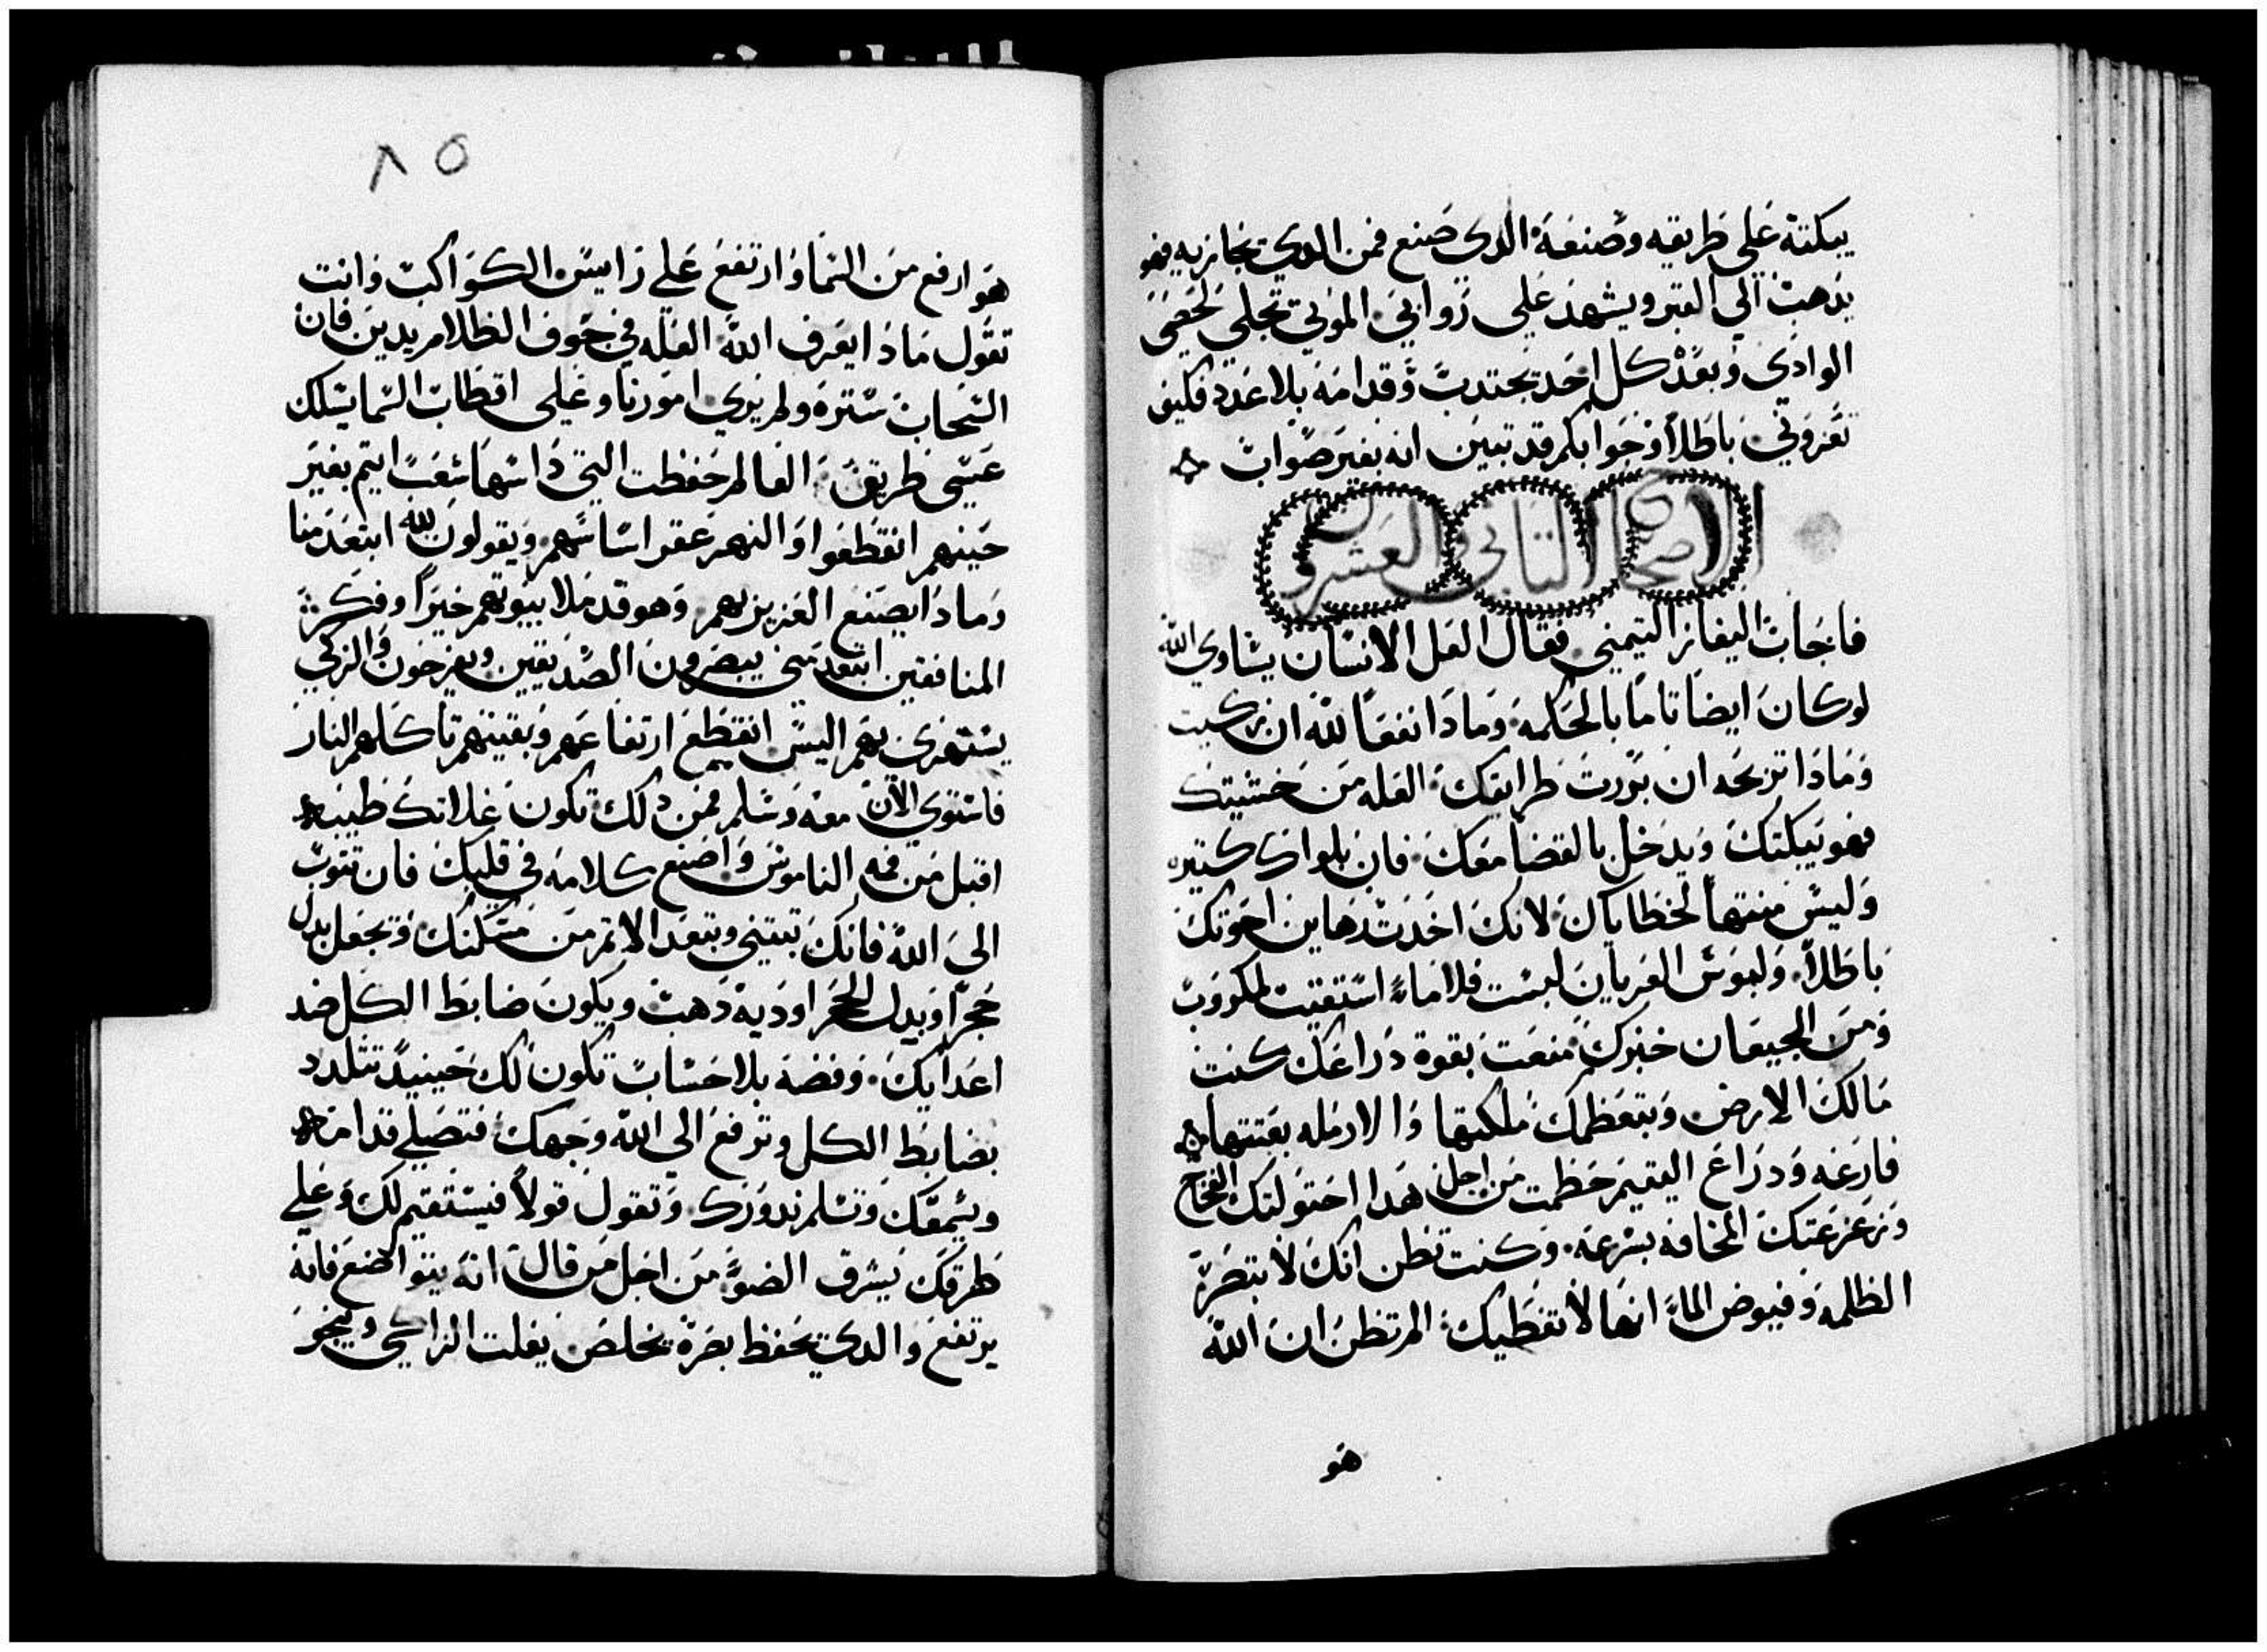 يبكتة على طريقه وصنعة الدى صنع فمن الدى يجازيه فهو
يدهب الي القبر ويشهد على زوابي الموتي تحلي لحصى
الوادى وبعد كل احد يجتدب وقدامه بلا عدد فكيف
تعزوني باطلاً وجوابكم قد تبين انه بغير صواب
الاصحاح التاني والعشرون
فاجاب اليفاز التيمني فقال العل الانسان يشاوي الله
لو كان ايضا تاما بالحكمه وما دا نفعا لله ان زكيت
وما دا تربحه ان بررت طرايقك العله من خشيتك
فهو يبكتك ويدخل بالقضا معك فان بلواك كتيره
وليش منتها لخطاياك لانك اخدت رهاين اخوتك
باطلاً ولبوش العريان لبست فلا ماءً استقيت لمكروب
ومن الجيعان خبزك منعت بقوة دراعك كنت
مالك الارض وبتعظمك ملكتها والارمله بعتتها
فارغه ودراع اليتيم حطمت من اجل هدا احتولتك الفخاخ
وزعزعتك المخافه بسرعه وكنت تظن انك لا تبتصر
الظلمه وفيوض الماءً انها لا تغطيك المرتظن ان الله
هو
٨٥
هو ارفع من السما وارتفع علي رايس الكواكب وانت
تقول ما دا يعرف الله العله في جوف الظلام يدين فان
السحاب سترة ولم يري امورنا وعلى اقطاب السما يسلك
عسى طريق العالم حفظت التي داسها شعب ايتم بغير
حينهم انقطعوا والنهر عقر اساسهم ويقولون لله ابتعد منا
وما دا يصنع العزيز بهم وهو قد ملا بيوتهم خيراً وفكر
المنافقين ابتعد مني يبصرون الصديقين ويفرحون والزكي
يستهزي بهم اليس انقطع ارتفاعهم وبقيتهم تاكلهم النار
فاستوي الان معه وسلم فمن دلك تكون غلاتك طيبه
اقبل من فمه الناموس واصنع كلامه في قلبك فان تتوب
الي الله فانك تبتني وبتعد الاتم من مسكنك وتجعل بدل
حجراً وبدل الحجر اودية دهب ويكون ضابط الكل ضد
اعدايك وفضه بلا حساب تكون لك حينيد تتلدد
بضابط الكل وترفع الي الله وجهك فتصلي قدامه
ويسمعك وتسلم ندورك وتقول قولاً فيستقيم لك وعلي
طرقك يشرق الضوً من اجل من قال انه يتواضع فانه
يرتفع والدي يحفظ بصرة يخلص يفلت الزاكي وينجو